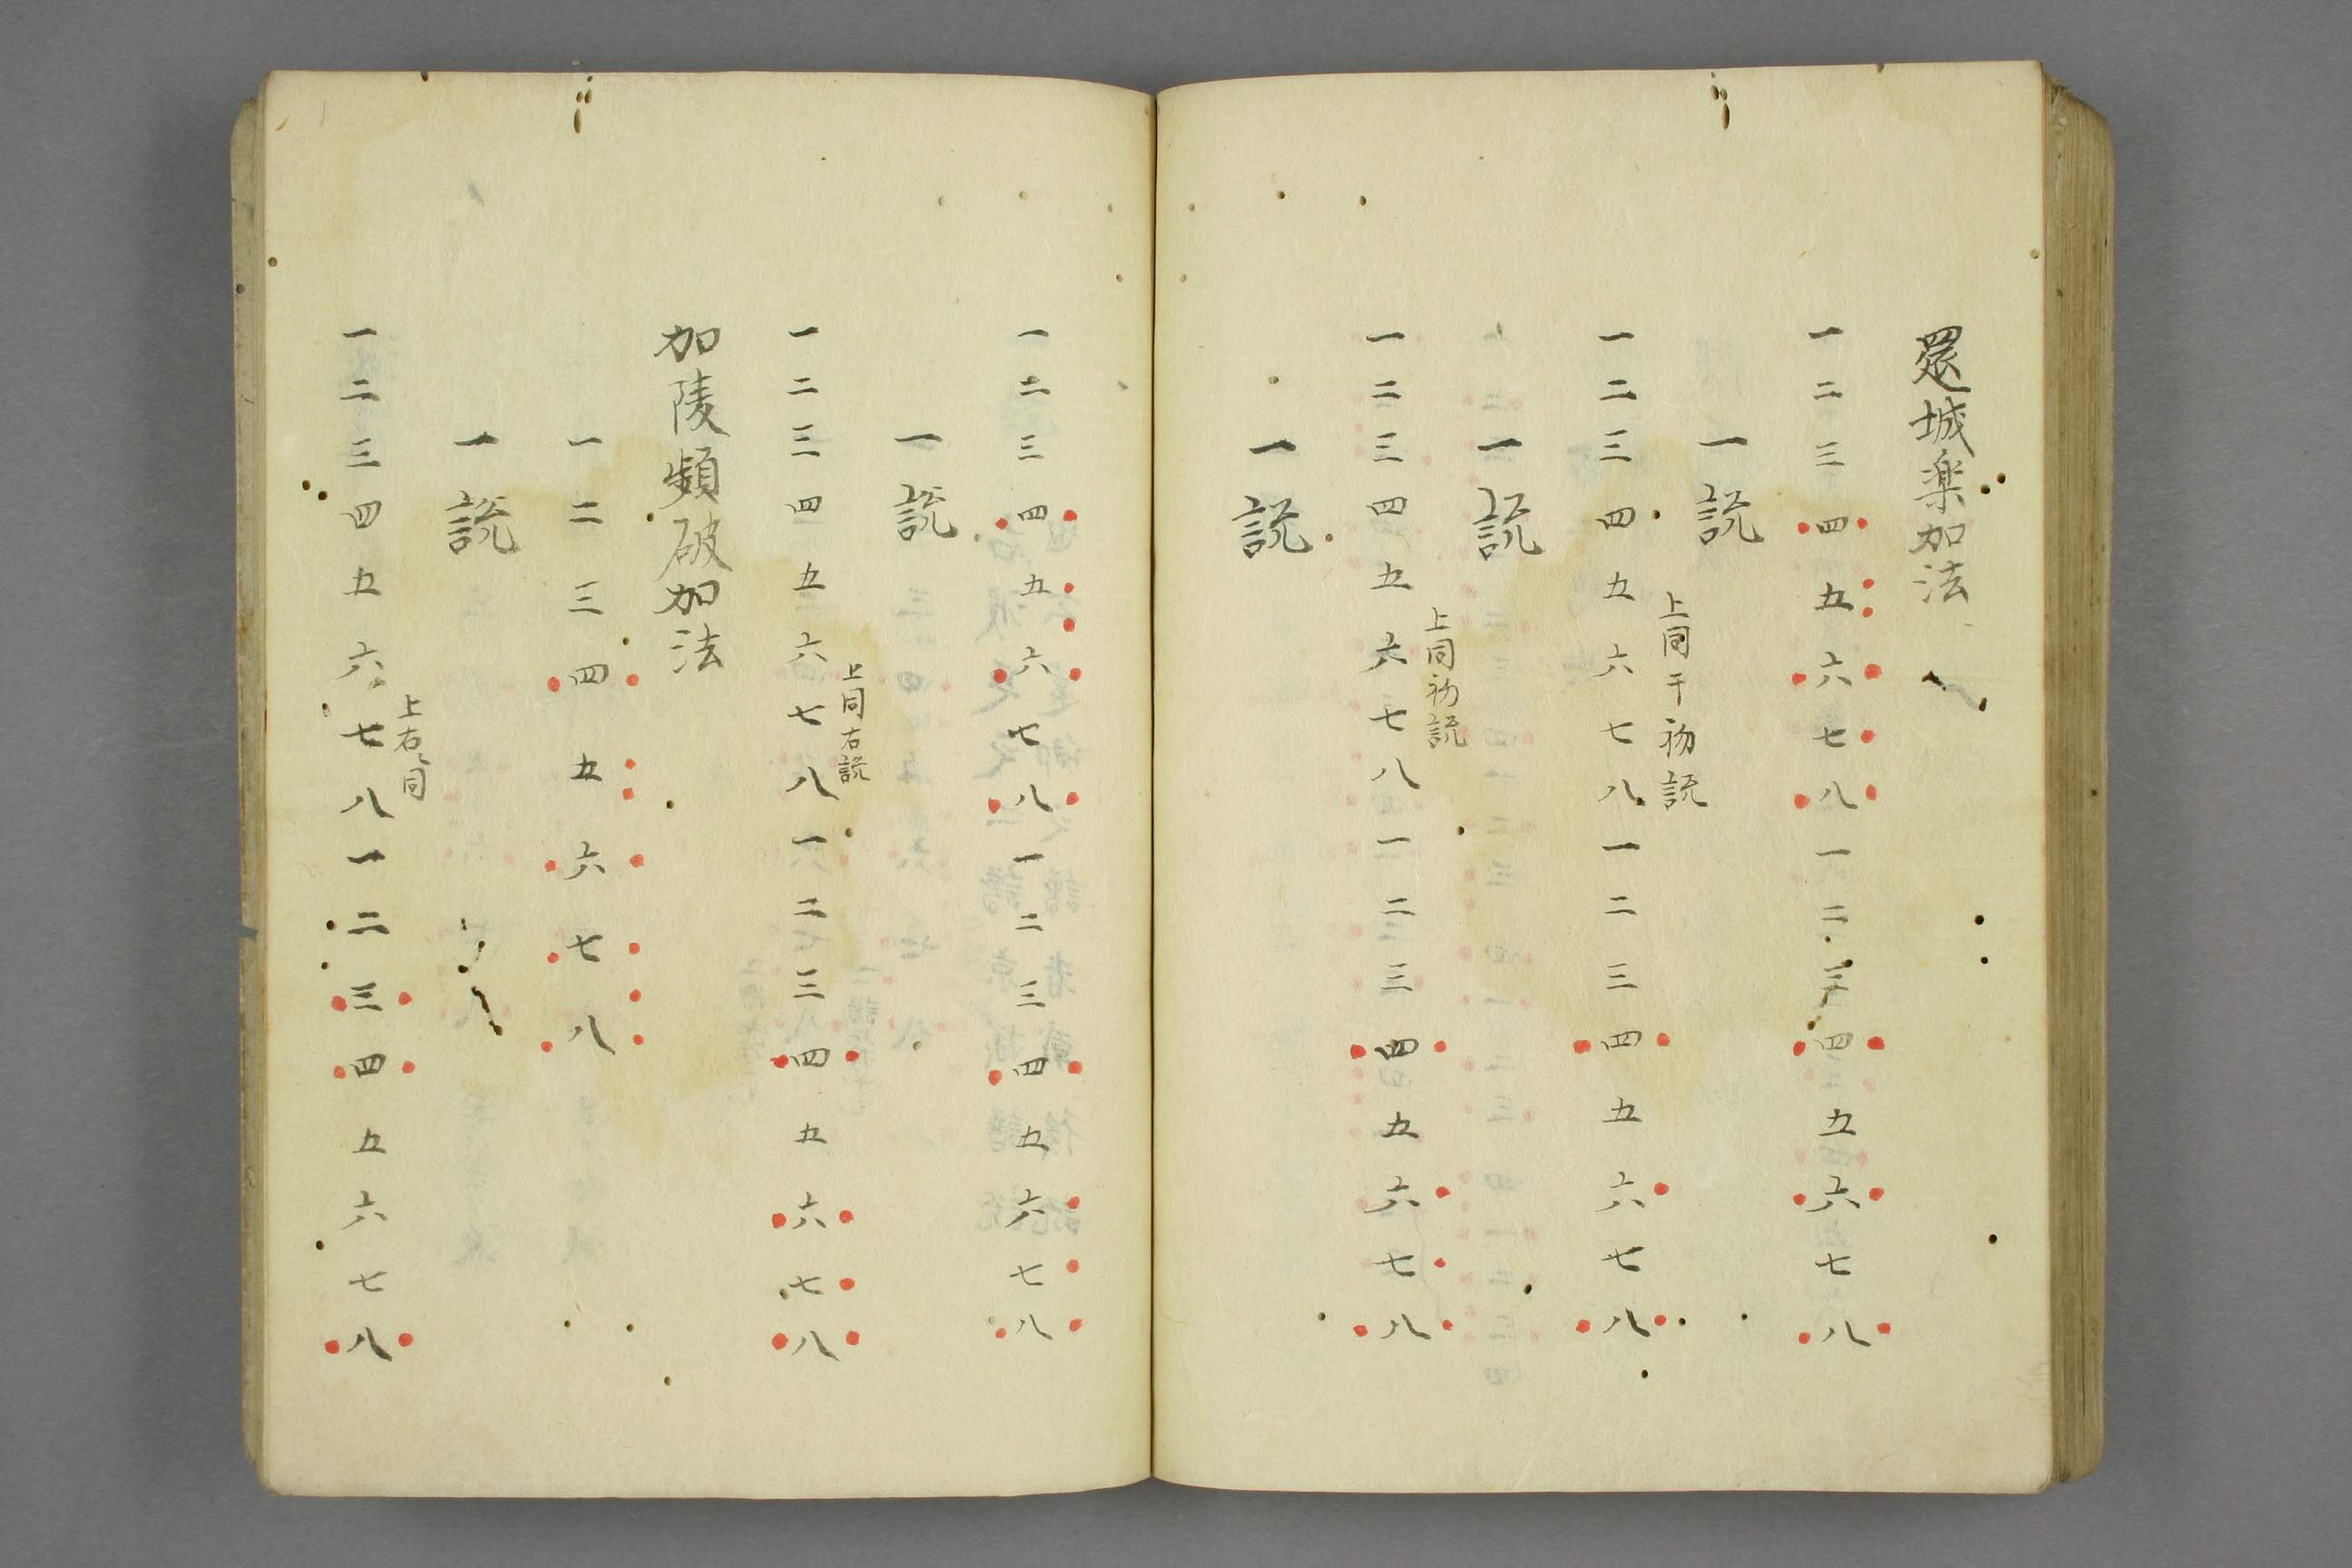 還城楽加法
一二三四五六七八一二三四五六七八
一説
上同于初説
一二三四五六七八一二三四五六七八
一説
上同初説
一二三四五六七八一二三四五六七八
一説
一二三四五六七八一二三四五六七八
一説
上同右説
一二三四五六七八一二三四五六七八
加陵頻破加法
一二三四五六七八
一説
上右同
一二三四五六七八一二三四五六七八